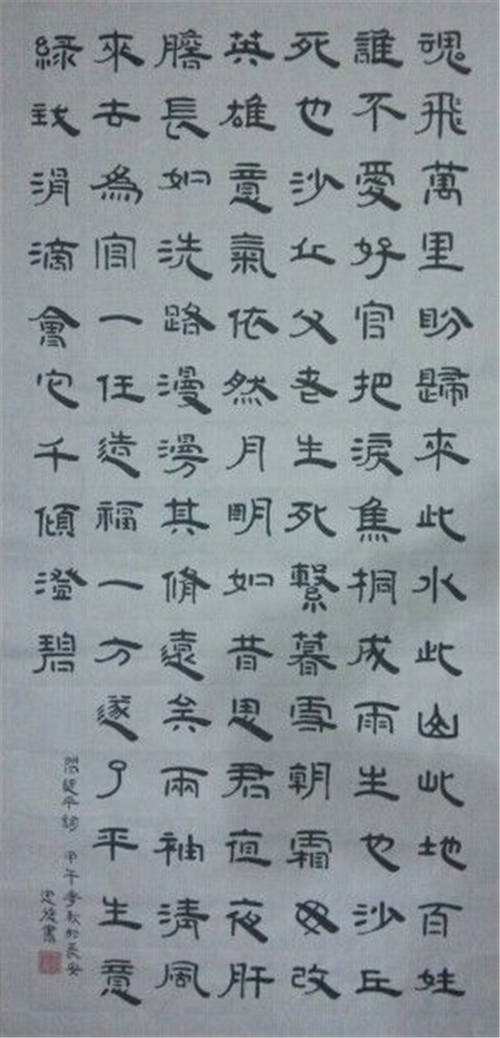 魂飛萬里盼歸來此水此山此地百姓
誰不愛好官把淚焦桐成雨生也沙丘
死也沙丘父老生死繫暮雪朝霜毋改
英雄意氣依然月明如昔思君亱夜肝
膽長如洗路漫漫其脩遠矣兩袖清風
來去為官一任造福一方遂了平生意
綠我涓滴會它千傾澄碧
平詞 甲午季秋於長安
書